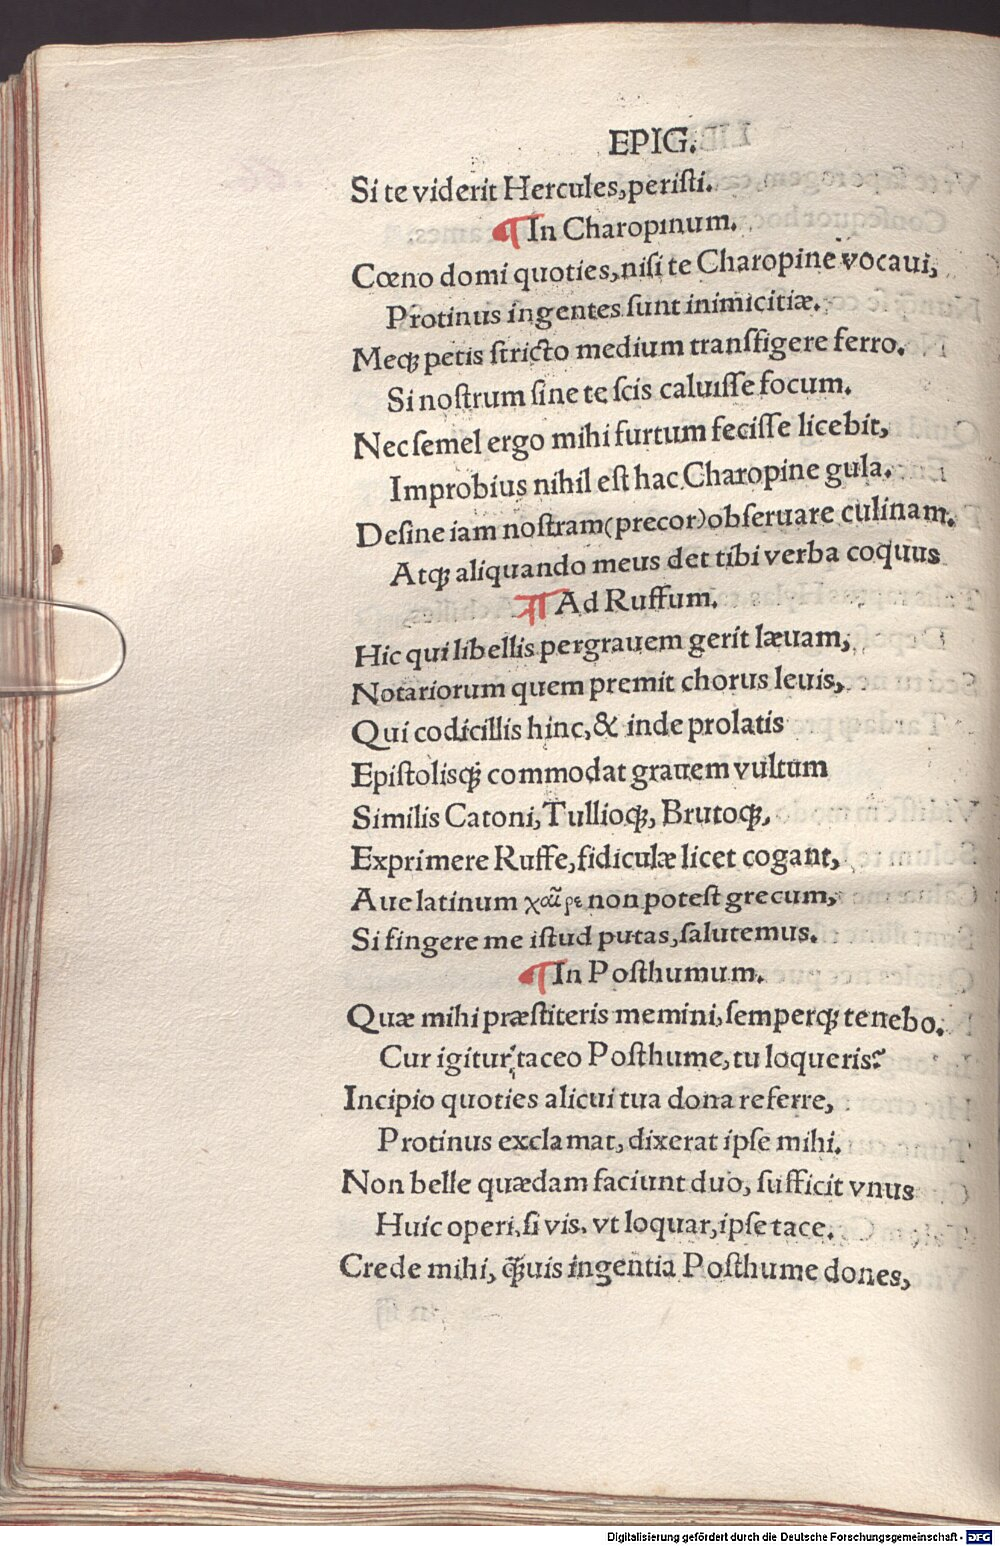 EPIG.
Si te viderit Hercules, peristi.
¶ In Charopinum.
Cœno domi quoties, nisi te Charopine vocaui,
Protinus ingentes sunt inimicitiæ.
Meqꝫ petis stricto medium transfigere ferro.
Si nostrum sine te scis caluisse focum.
Nec semel ergo mihi furtum fecisse licebit,
Improbius nihil est hac Charopine gula.
Desine iam nostram (precor) obseruare culinam.
Atqꝫ aliquando meus det tibi verba coquus
¶ Ad Ruffum.
Hic qui libellis pergrauem gerit læuam,
Notariorum quem premit chorus leuis,
Qui codicillis hinc, & inde prolatis
Epistolisqꝫ commodat grauem vultum
Similis Catoni, Tullioqꝫ, Brutoqꝫ,
Exprimere Ruffe, fidiculæ licet cogant,
Aue latinum χαῖρε non potest grecum,
Si fingere me istud putas, salutemus.
¶ In Posthumum.
Quæ mihi præstiteris memini, semperqꝫ tenebo.
Cur igitur taceo Posthume, tu loqueris?
Incipio quoties alicui tua dona referre,
Protinus exclamat, dixerat ipse mihi.
Non belle quædam faciunt duo, sufficit vnus
Huic operi, si vis. vt loquar, ipse tace.
Crede mihi, q̃uis ingentia Posthume dones,
Digitalisierung gefördert durch die Deutsche Forschungsgemeinschaft - DFG